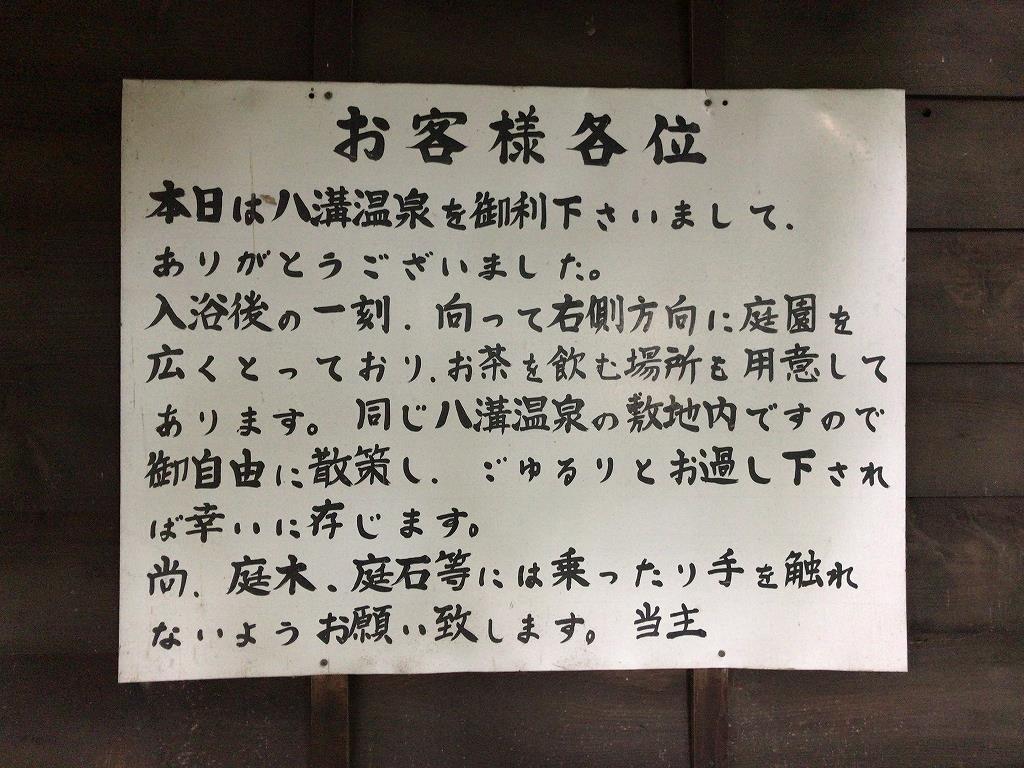 お客様各位
本日は八溝温泉を御利下さいまして、
ありがとうございました。
入浴後の一刻、向って右側方向に庭園を
広くとっており、お茶を飲む場所も用意して
あります。同じ八溝温泉の敷地内ですので
御自由に散策し、ごゆるりとお過し下され
ば幸いに存じます。
尚、庭木、庭石等には乗ったり手を触れ
ないようお願い致します。当主